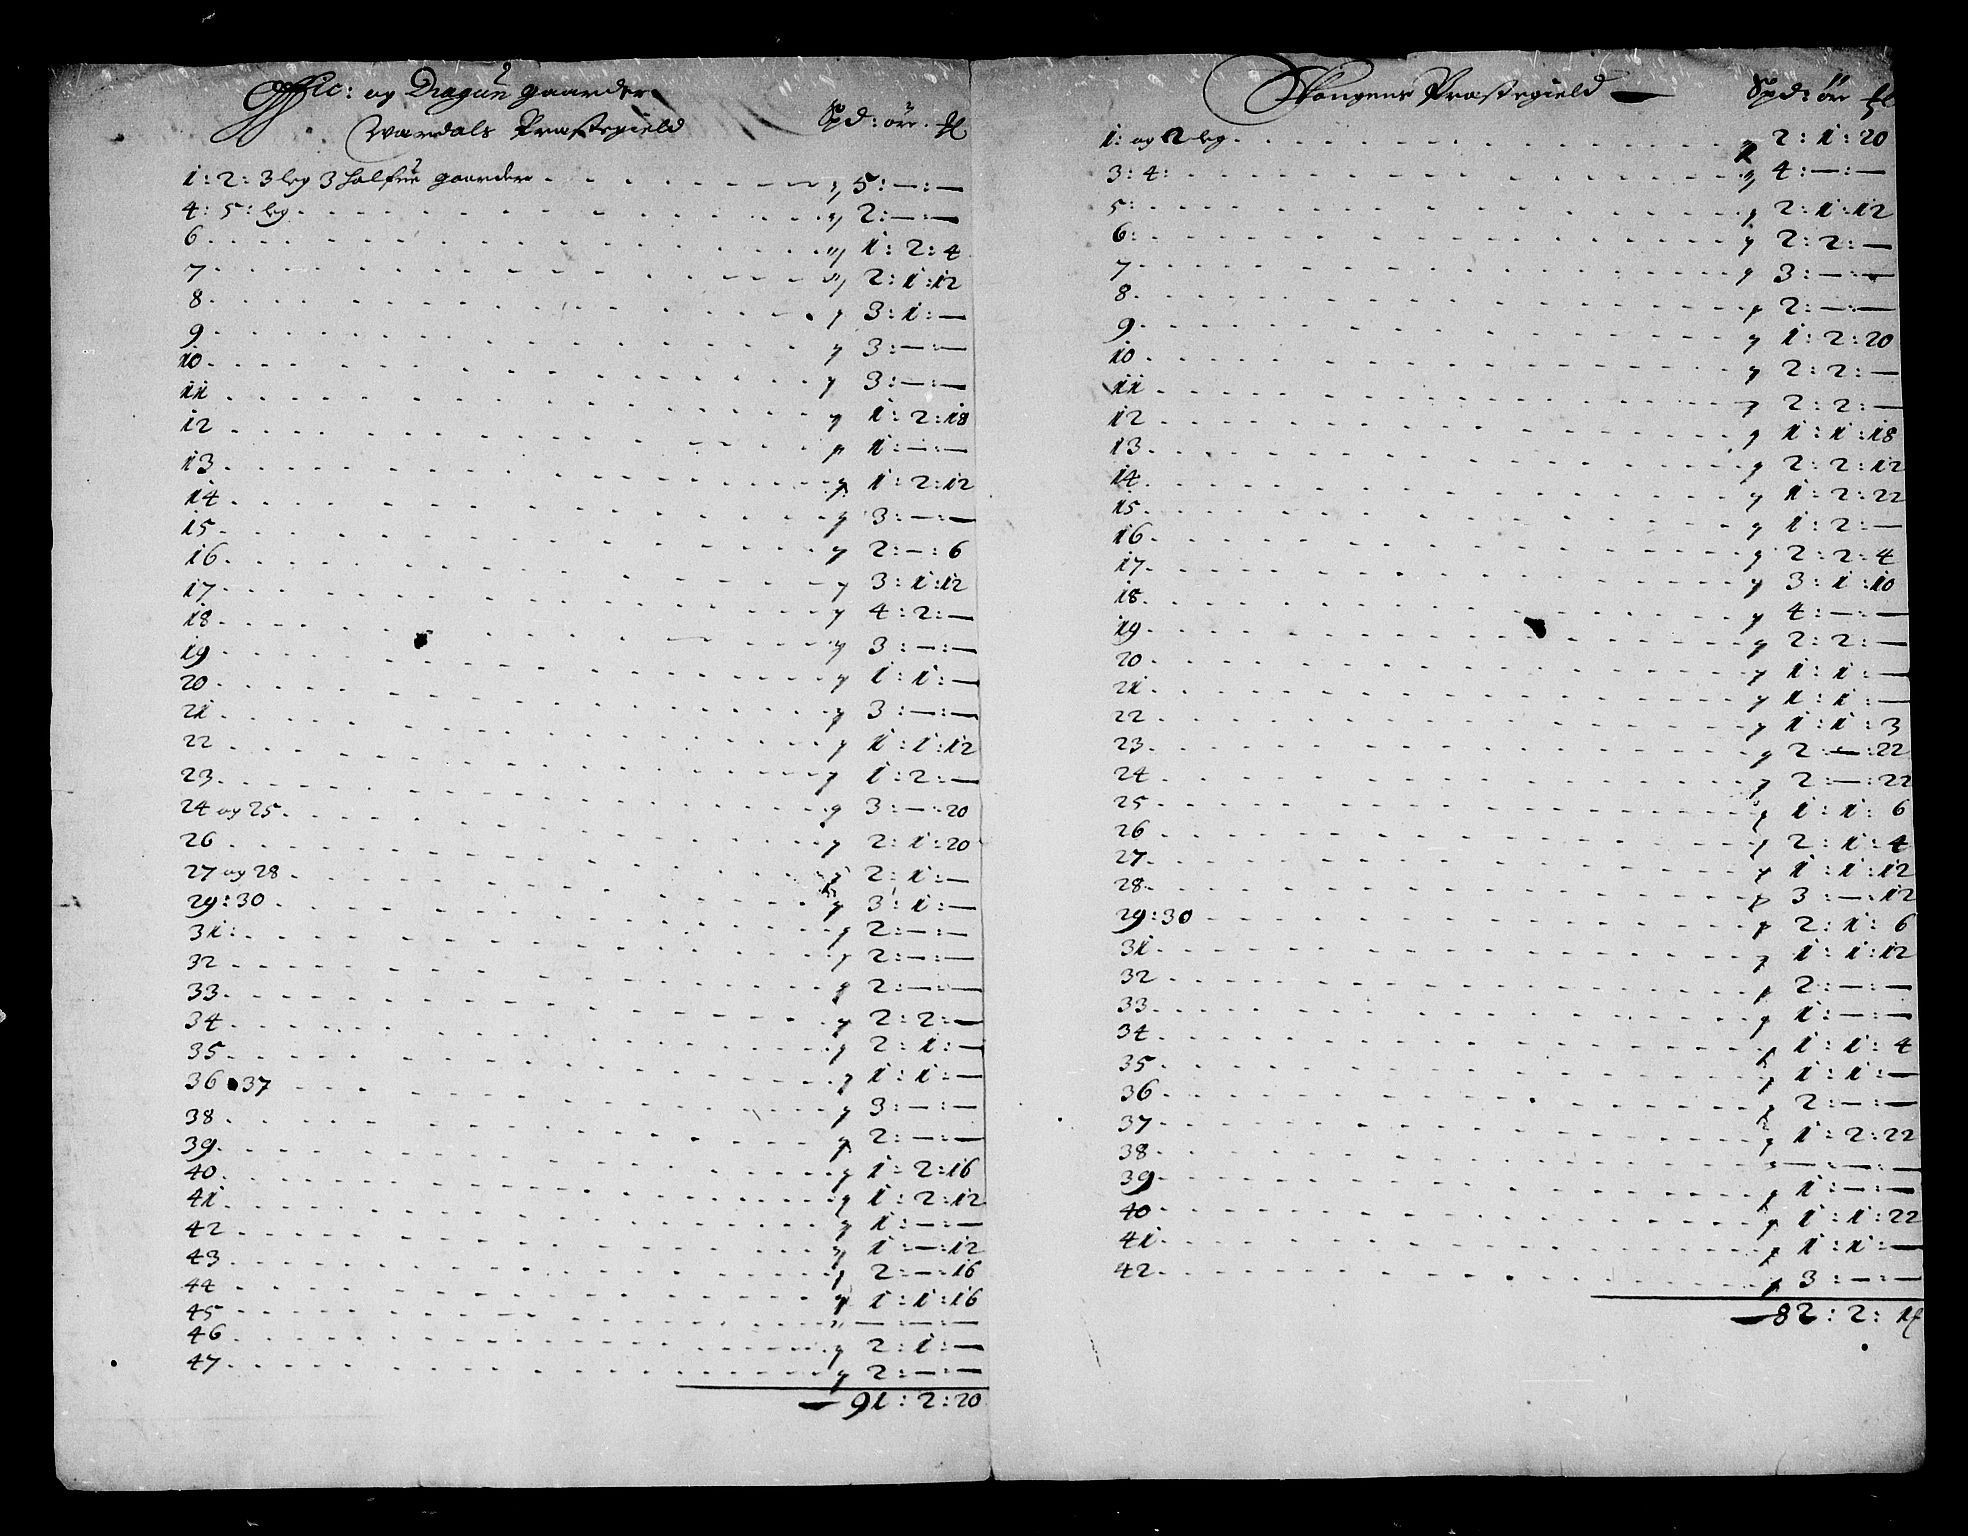 Offic: og Dragun gaarder
Wardals Præstegield Spd: öre. 
1: 2: 3 leg 3 halfue gaarder 5: — : —
4: 5: leg 2: — : —
6 1: 2: 4
7 2: 1: 12
8 3: 1: —
9 3: — : —
10 3: — : —
11 1: 2: 18
12 1: — : —
13 1: 2: 12
14 3: — : —
15 2: — : 6
16 3: 1: 12
17 4: 2: —
18 3: — : —
19 1: 1: —
20 3: — : —
21 1: 1: 12
22 1: 2: —
23
24 og 25 3: — : 20
26 2: 1: 20
27 og 28 2: 1: —
29: 30 3: 1: —
31: 2: — : —
32 2: — : —
33 2: — : —
34 2: 2: —
35 2: 1: —
36 1: 1: —
37 3: — : —
38 2: — : —
39 1: 2: 16
40 1: 2: 12
41 1: — : —
42 1: — : 12
43 2: — : 16
44 1: 1: 16
45 — : — : —
46 2: 1: —
47 2: — : —
91: 2: 20
Skongens Præstegield Spd: öre
1: og 2 leg 2: 1: 20
3: 4: 4: — : —
5: 2: 1: 12
6: 2: 2: —
7 3: — : —
8 2: — : —
9 1: 2: 20
10 2: 2: —
11 2: 2: —
12 1: 1: 18
13 2: 2: 12
14 1: 2: 22
15 1: 2: —
16 2: 2: 4
17 3: 1: 10
18 4: — : —
19 2: 2: —
20 1: 1: —
21 1: 1: —
22 1: 1: 3
23 2: — : 22
24 2: — : 22
25 1: 1: 6
26 2: 1: 4
27 1: 1: 12
28 3: — : 12
29: 30 2: 1: 6
31 1: 1: 12
32 2: — : —
33 1: — : —
34 1: 1: 4
35 1: 1: —
36 2: — : —
37 1: 2: 22
38 — : — : —
39 1: — : —
40 1: 1: 22
41 1: 1: —
42 3: — : —
82: 2: